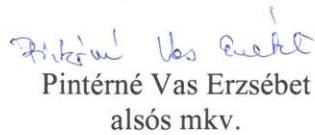 Pintérné Vas Erzsébet
Pintérné Vas Erzsébet
alsós mkv.